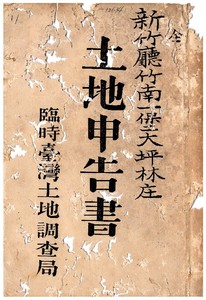 全
新竹廳竹南一保大坪林庄
土地申告書
臨時臺灣土地調查局